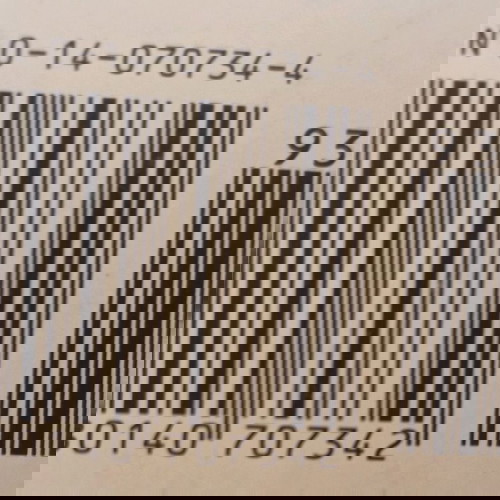 N 0-14-070734-4
93
0140 707342